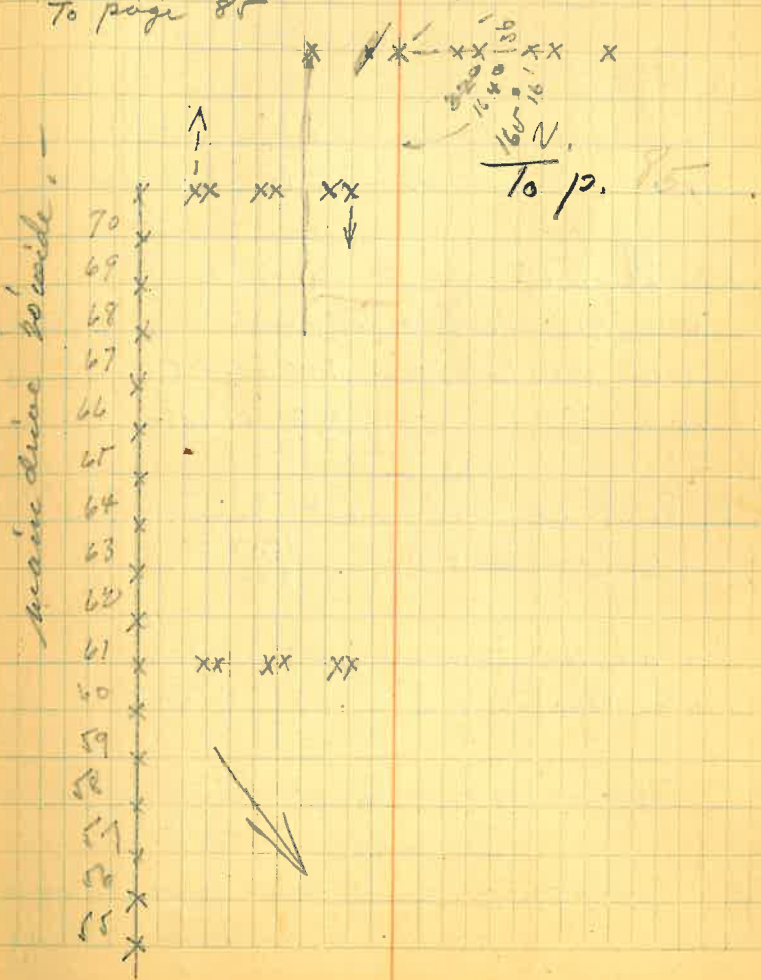 To page 85
136
320
1640
165'
16'
N.
To p. 85.
main drive 20' wide. —
70
69
68
67
66
65
64
63
62
61
60
59
58
57
56
55